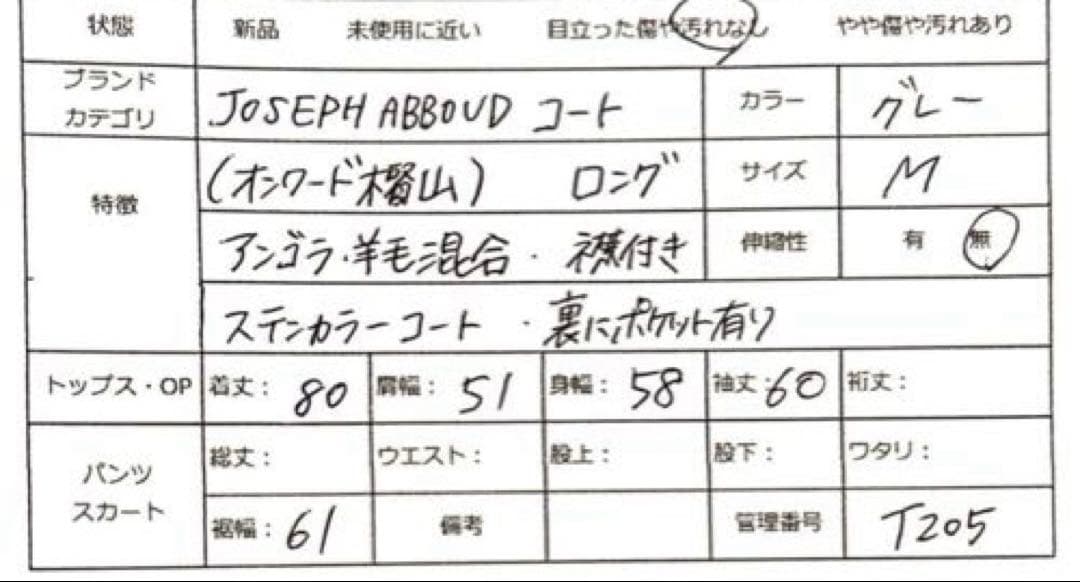 状態 新品 未使用に近い 目立った傷や汚れなし やや傷や汚れあり
ブランド
カテゴリ JOSEPH ABBOUD コート カラー グレー
特徴 (オンワード樫山) ロング サイズ M
アンゴラ・羊毛混合・襟付き 伸縮性 有 無
ステンカラーコート ・裏にポケット有り
トップス・OP 着丈: 80 肩幅: 51 身幅: 58 袖丈: 60 裄丈:
パンツ
スカート
総丈: ウエスト: 股上: 股下: ワタリ:
裾幅: 61 備考 管理番号 T205